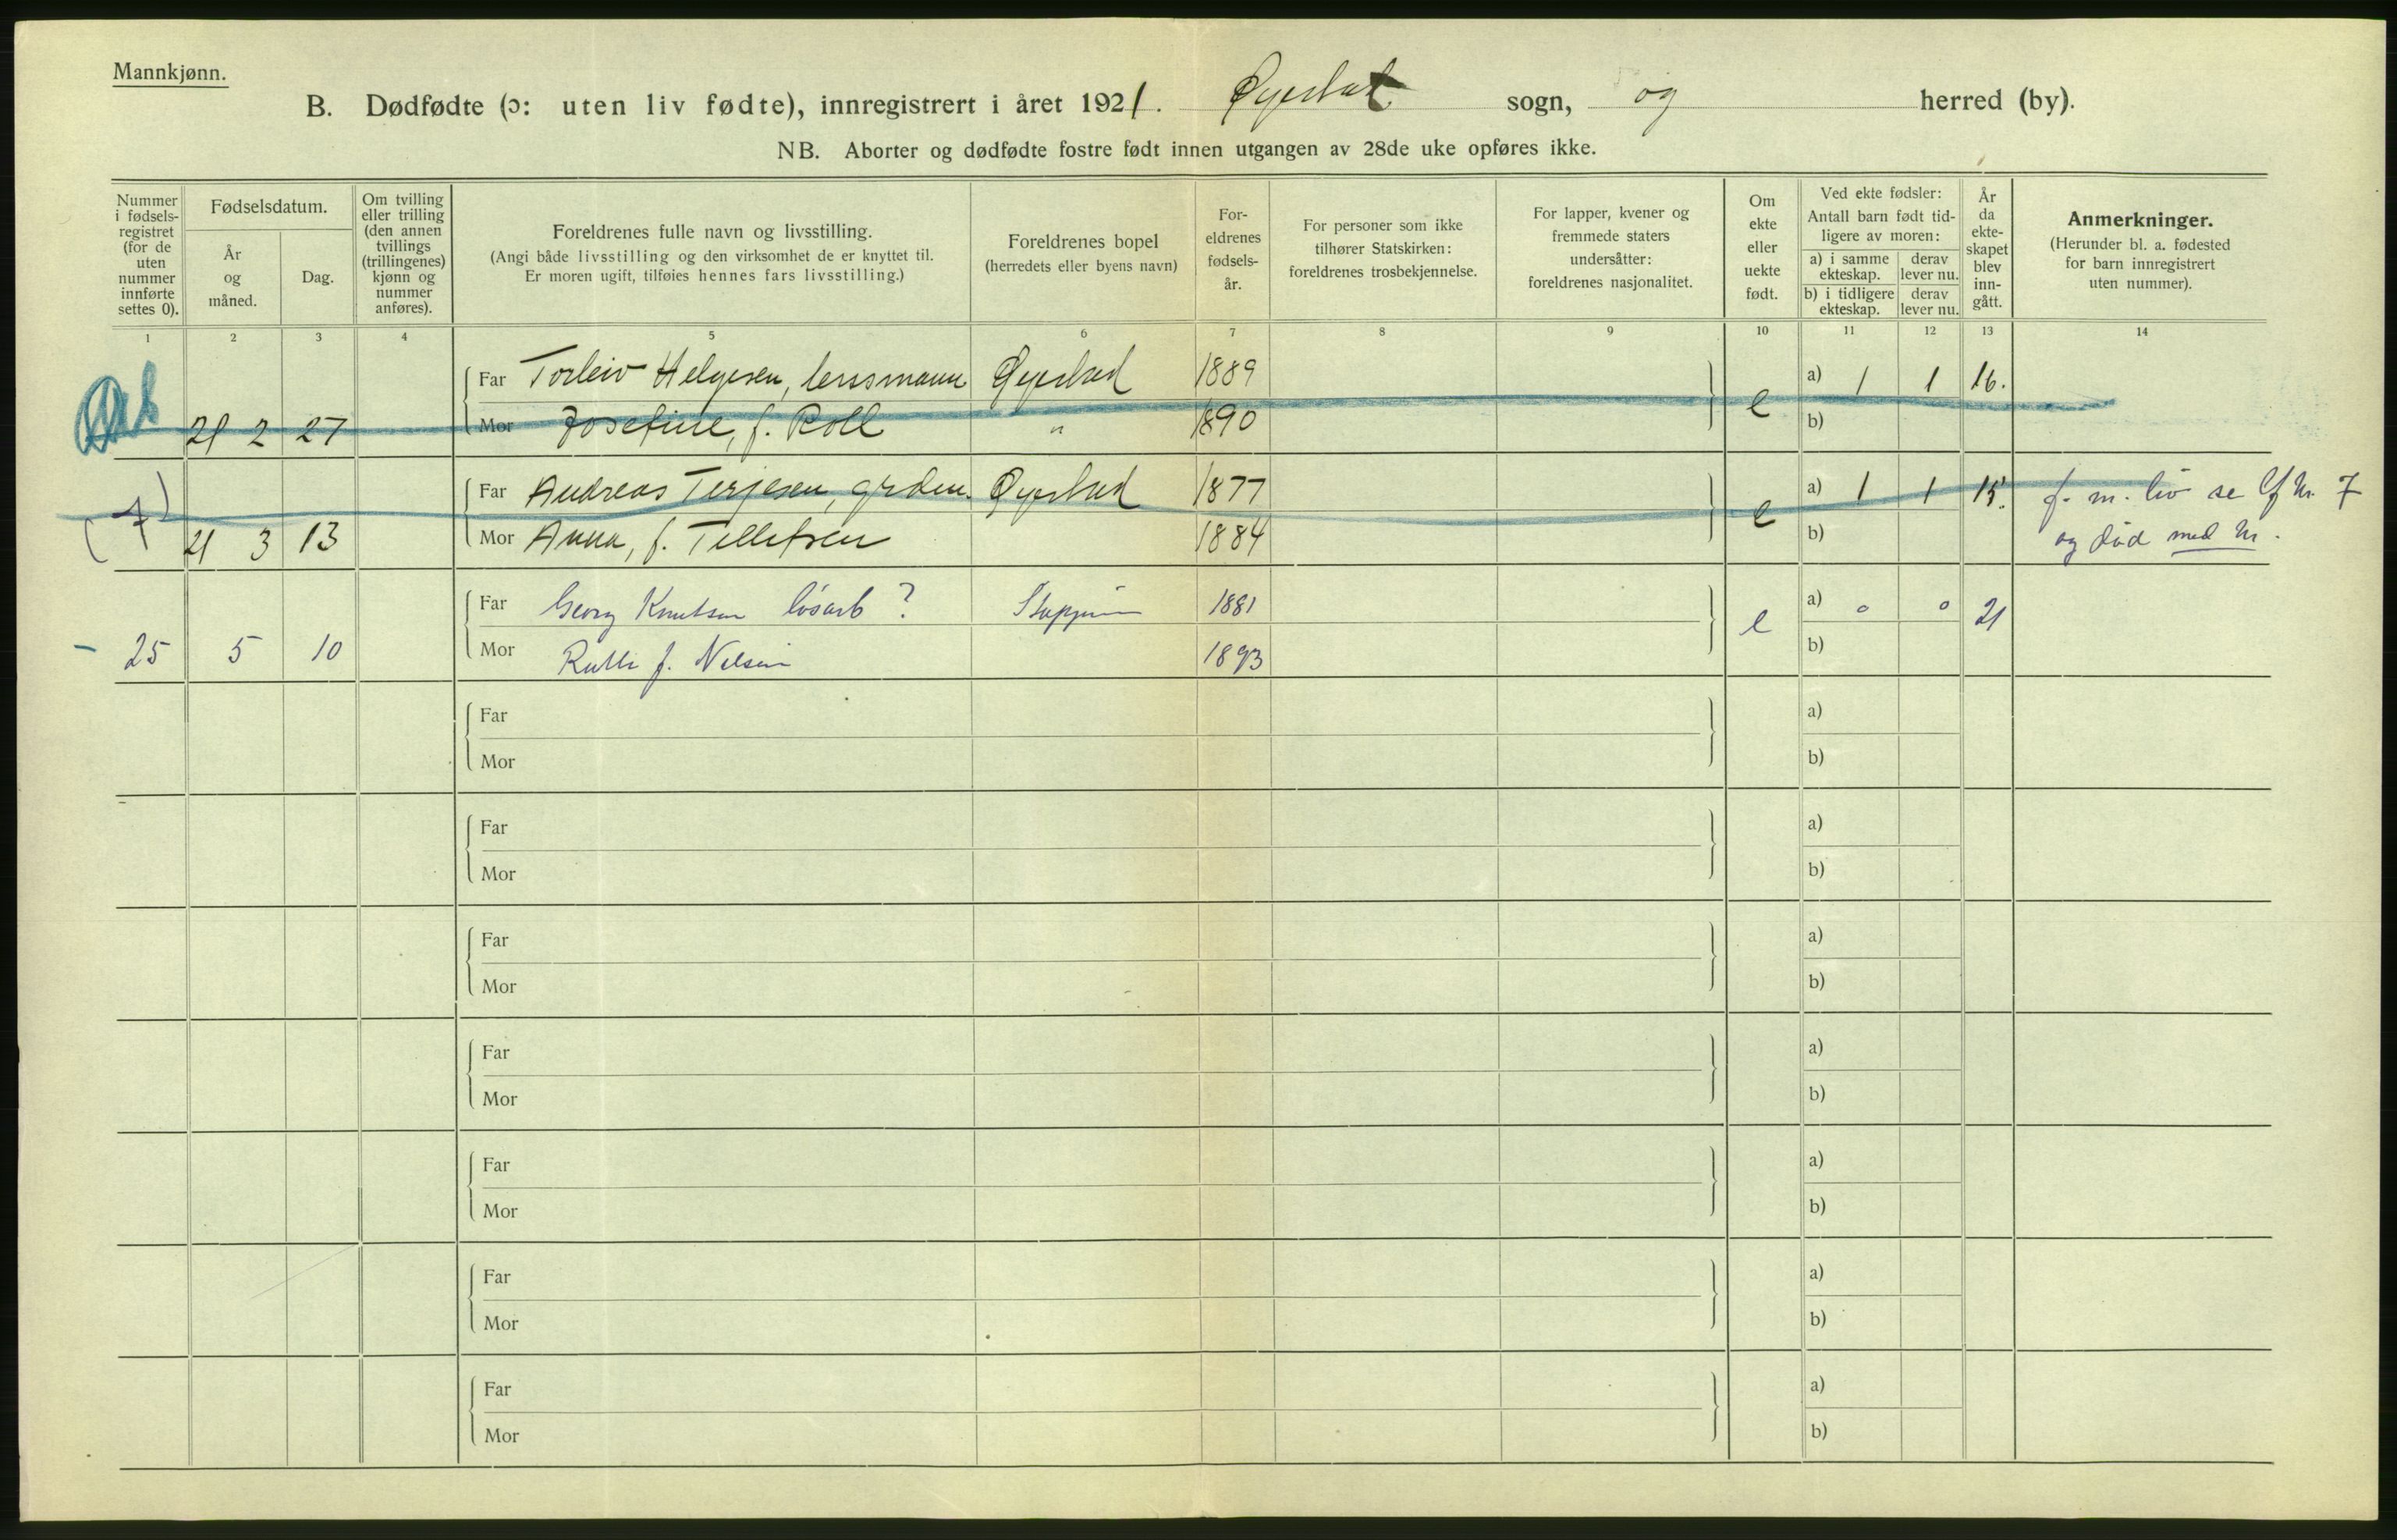 Mannkjønn.
B. Dødfødte (ɔ: uten liv fødte), innregistrert i året 1921. Øyestad sogn, og herred (by).
NB. Aborter og dødfødte fostre født innen utgangen av 28de uke opføres ikke.
Nummer i fødsels-registret (for de uten nummer innførte settes 0).
Fødselsdatum.
År og måned.
Dag.
Om tvilling eller trilling (den annen tvillings (trillingenes) kjønn og nummer anføres).
Foreldrenes fulle navn og livsstilling.
(Angi både livsstilling og den virksomhet de er knyttet til.
Er moren ugift, tilføies hennes fars livsstilling.)
Foreldrenes bopel
(herredets eller byens navn)
For-eldrenes fødsels-år.
For personer som ikke tilhører Statskirken: foreldrenes trosbekjennelse.
For lapper, kvener og fremmede staters undersåtter: foreldrenes nasjonalitet.
Om ekte eller uekte født.
Ved ekte fødsler:
Antall barn født tid-ligere av moren:
a) i samme ekteskap.
derav lever nu.
b) i tidligere ekteskap.
derav lever nu.
År da ekte-skapet blev inn-gått.
Anmerkninger.
(Herunder bl. a. fødested for barn innregistrert uten nummer).
1 2 3 4 5 6 7 8 9 10 11 12 13 14
Far Torleiv Helgesen, lensmann Øyestad 1889 a) 1 1 16.
21 2 27 Mor Josefine, f. Roll " 1890 e b)
(7) Far Andreas Terjesen, grdm. Øyestad 1877 a) 1 1 15. f. m. liv se lf nr. 7
21 3 13 Mor Anna, f. Tellefsen 1884 e b) og død med nr.
Far Georg Knutsen løsarb ? 1881 e a) 0 0 21
- 25 5 10 Mor Ruth f. Nilsen 1893 b)
Far a)
Mor b)
Far a)
Mor b)
Far a)
Mor b)
Far a)
Mor b)
Far a)
Mor b)
Far a)
Mor b)
Far a)
Mor b)